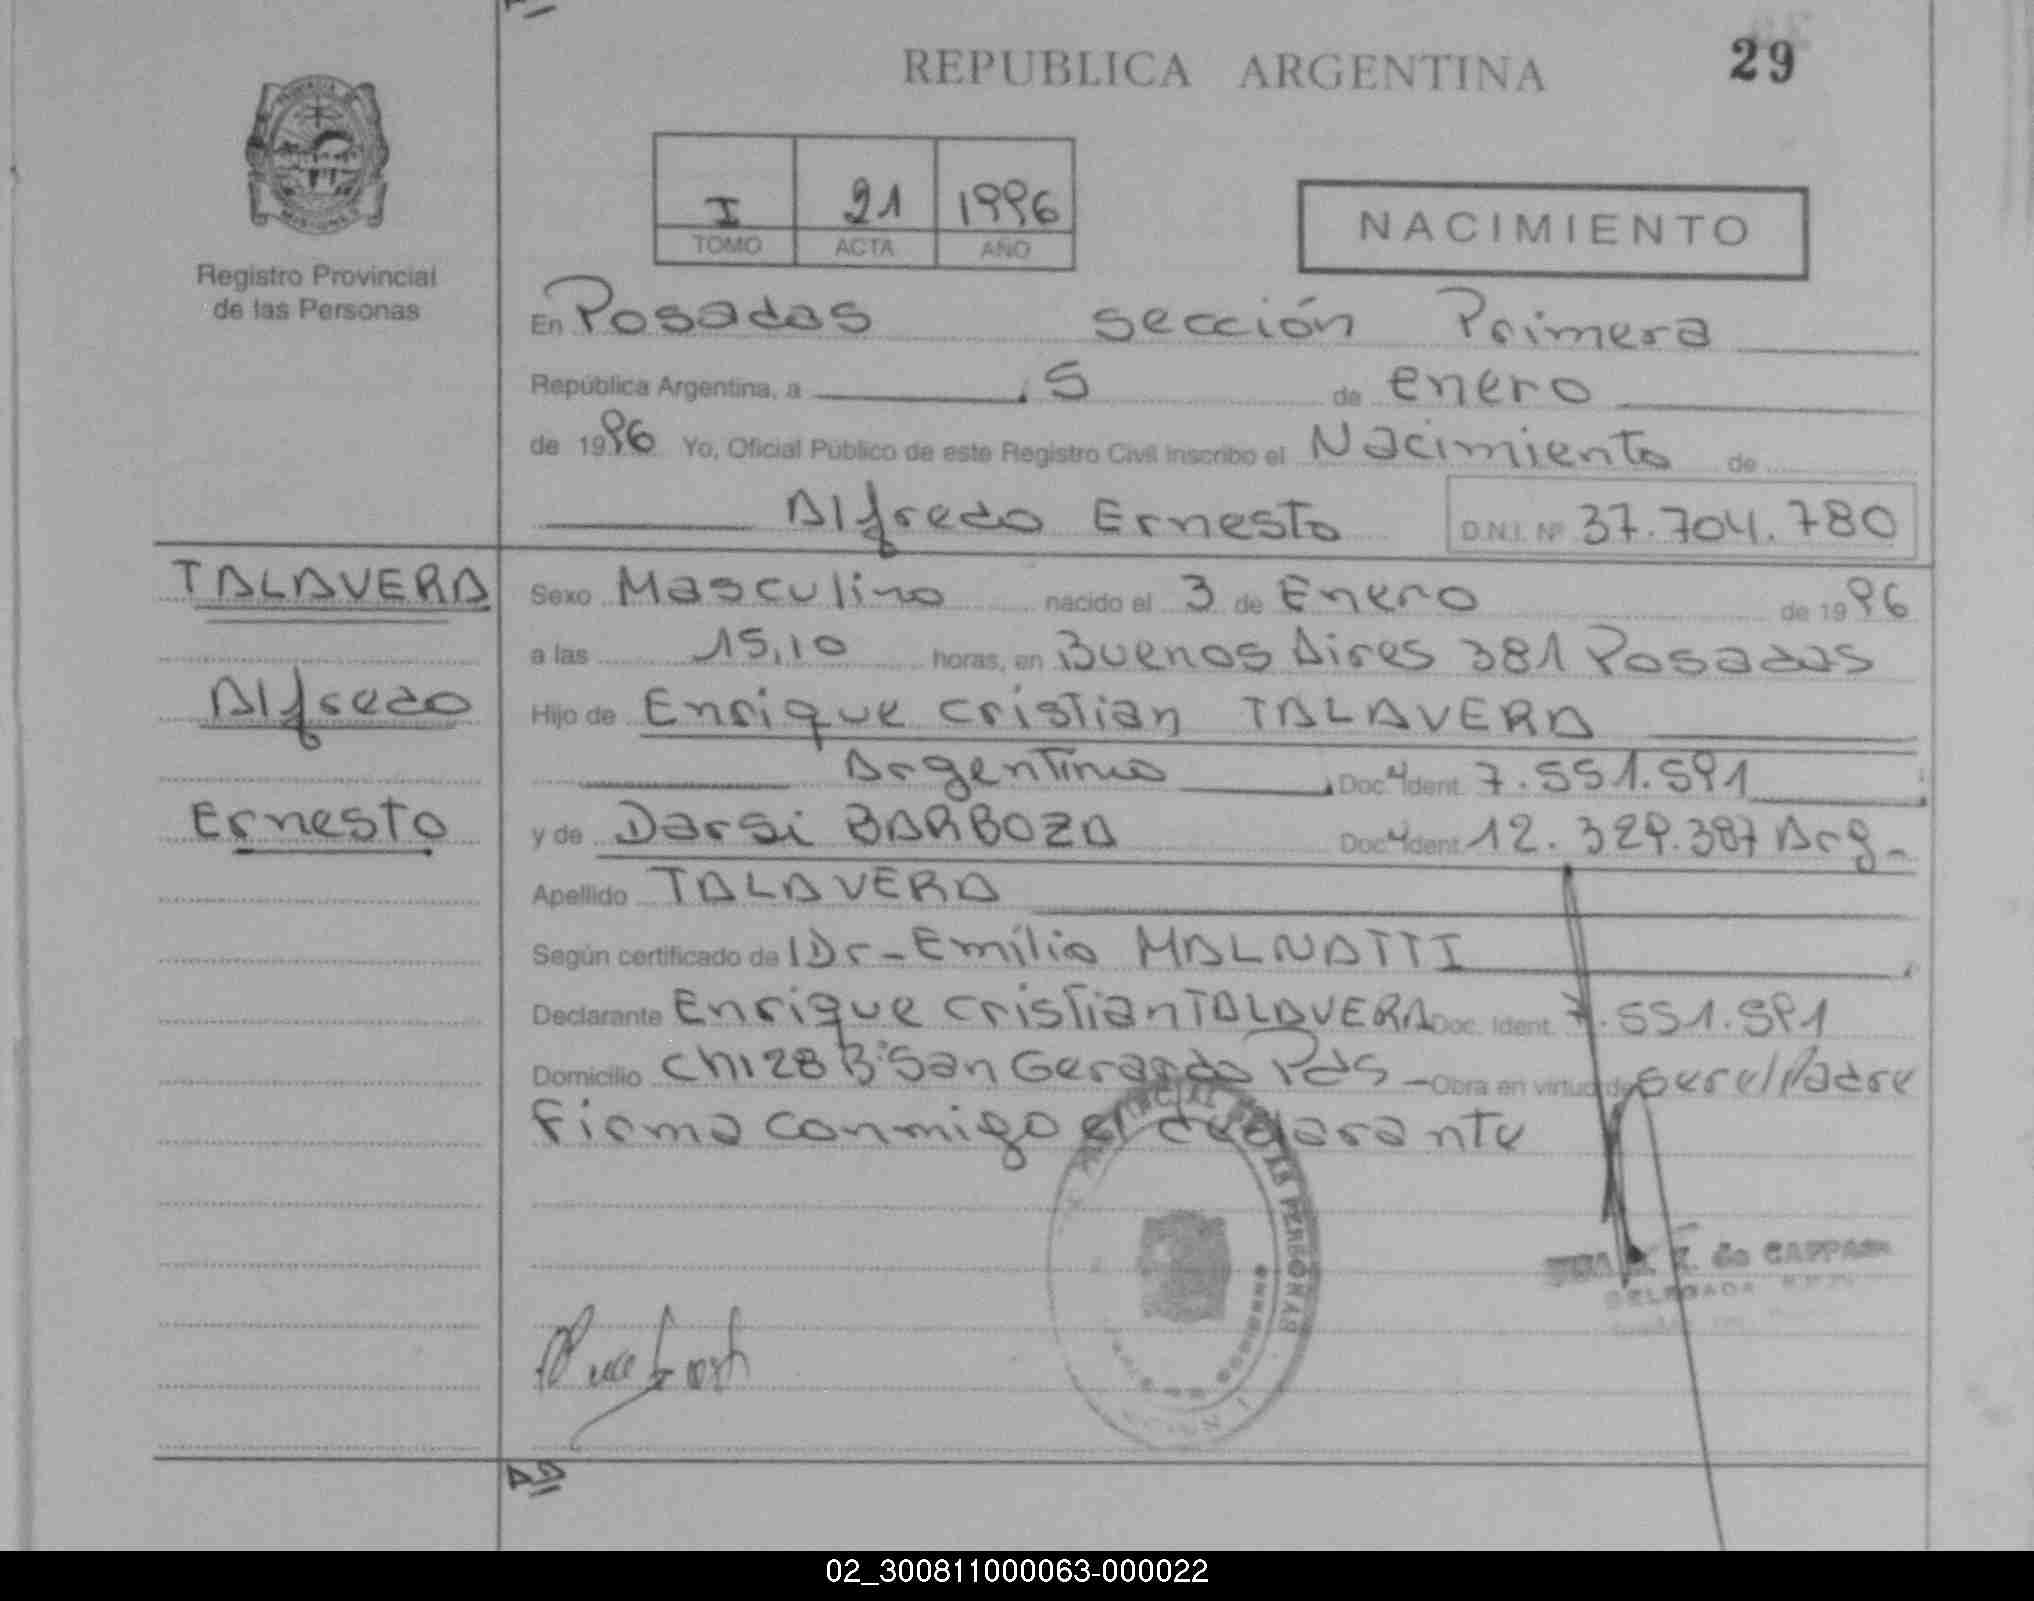 REPUBLICA ARGENTINA
29
Registro Provincial
de las Personas
I 21 1996
TOMO ACTA AÑO
NACIMIENTO
En Posadas sección Primera
República Argentina, a 5 de enero
de 1996 Yo, Oficial Público de este Registro Civil inscribo el Nacimiento de
Alfredo Ernesto D.N.I. Nº 37.704.780
TALAVERA
Alfredo
Ernesto
Sexo Masculino nacido el 3 de Enero de 1996
a las 15,10 horas, en Buenos Aires 381 Posadas
Hijo de Enrique Cristian TALAVERA
Argentino Doc. Ident. 7.551.591
y de Darsi BARBOZA Doc. Ident. 12.329.387 Arg.
Apellido TALAVERA
Según certificado de Dr. Emilio MALNATTI
Declarante Enrique Cristian TALAVERA Doc. Ident. 7.551.591
Domicilio Ch128 Bº San Gerardo Pdas - Obra en virtud de ser el Padre
Firma conmigo el declarante
LAS PERSONAS
de
DELEGADA
02_300811000063-000022